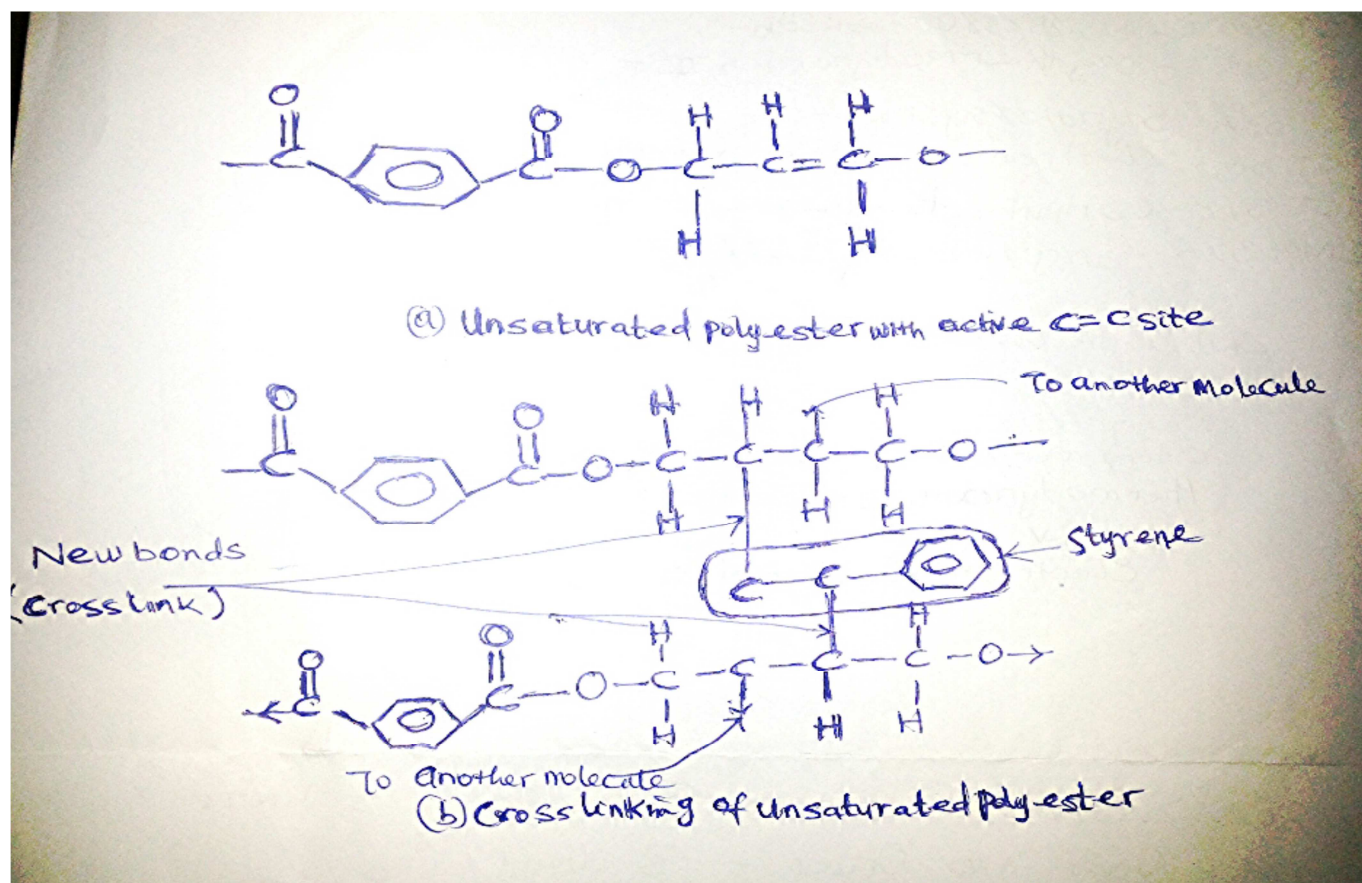 O O H H H
C C O C C = C O
H H
(a) Unsaturated polyester with active C=C site
To another Molecule
O O H H H
C C O C C C C O
H H H
New bonds
Styrene
(Cross Link)
C C
O O H H
C C O C C C C O
H H H
To another molecule
(b) Cross linking of unsaturated polyester